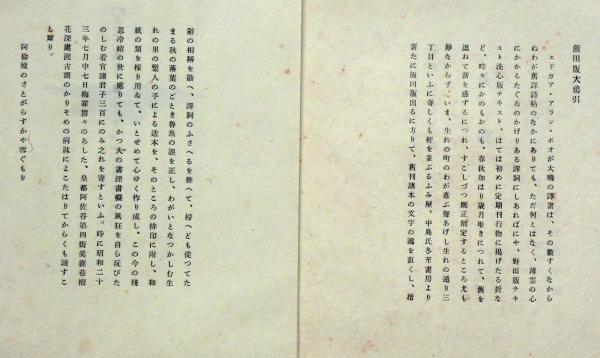 飯田版大鴉引
エドガア・アラン・ポオが大鴉の譯書は、その數すくなから
ぬわが舊譯詩帖のなかにありても、ただ何とはなく、薄雲の心
にかかるたぐゐのかげりある譯詞にしあればにや、野田版テキ
スト洗心版テキスト、はては初めに定期刊行物に揭げたる折な
ど、吟々におのもおのも、春秋加はり歲月堆きにつれて、舊を
溫ねて新を感ずるにつれ、すこしづつ刪正削定するところ尤も
尠なからず。いま、生れの町のわが選ぶ聲あげし生れの通り三
丁目といふに奇しくも軒を並ぶるふみ屋、中島氏冬至書房より
新たに飯田版出るに方りて、舊刊諸本の文字の譌を直くし、措
辭の相縟を勘へ、譯詞のふさへるを整へて、掃へども從つてた
まる秋の落葉のごとき魯魚の誤を正し、わがいとなつかしむ生
れの里の壑人の手による造本を、そのところの排印に附し、和
紙の類を採り用ゐて、いとせめて心ゆく作り成し、この今の殘
忍冷峭の世に處りても、かつ夫の書淫書癡の風狂を自ら玩びた
のしむ看官諸君子三百にのみ之れを寄すといふ。時に昭和二十
三年七月中七日梅霖霽々のあした、皇都阿佐谷第四街美裳巷樹
花深處泥古齋のかりそめの病牀によこたはりてからくも識すこ
と爾り。
阿倫坡のさとがらすかや雪ぐもり